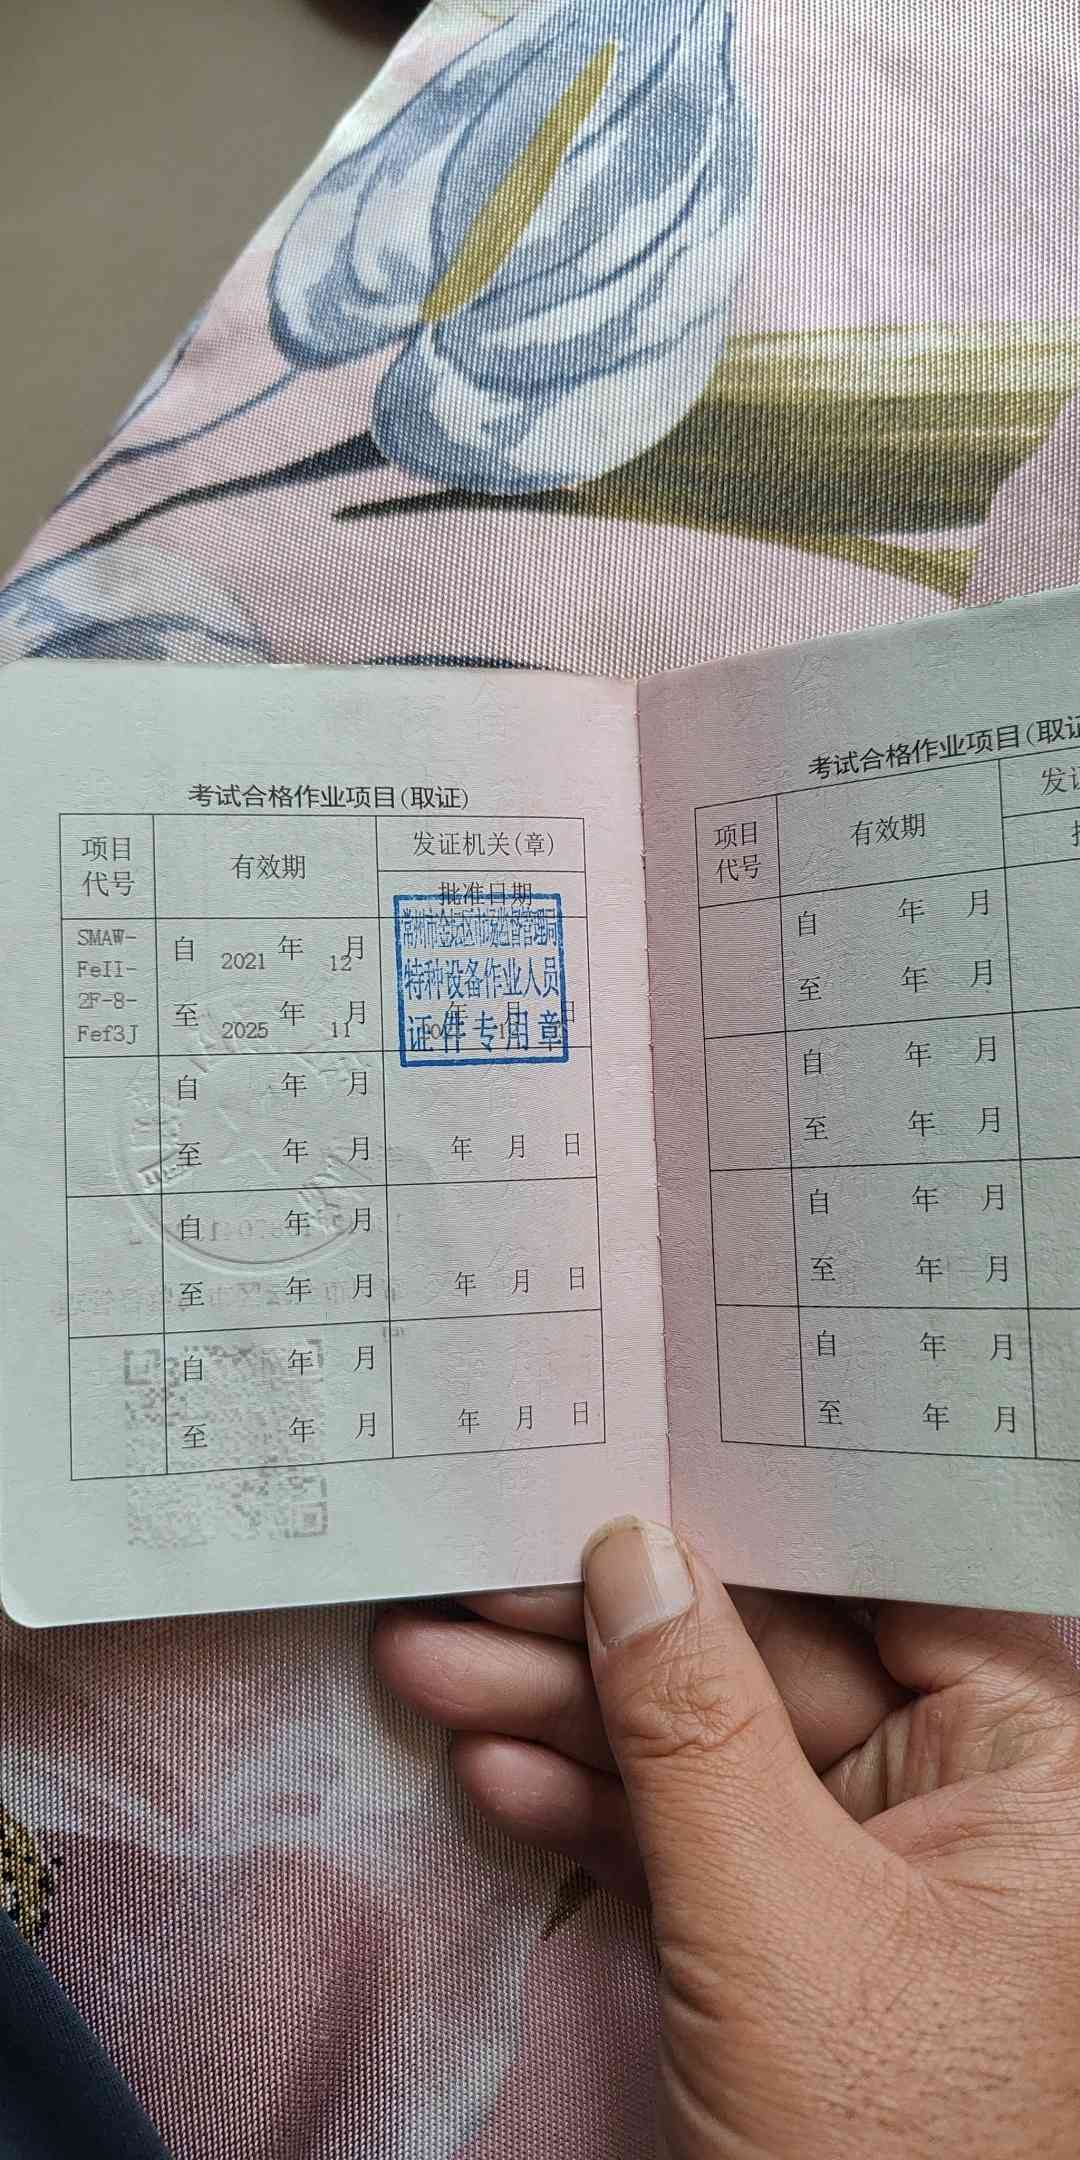 考试合格作业项目(取证)
项目
代号
有效期
发证机关(章)
批准日期
SMAW-
FeII-
2F-8-
Fef3J
自 2021 年 12 月
至 2025 年 11 月
常州市金坛区市场监督管理局
特种设备作业人员
证件专用章
年 月 日
自 年 月
至 年 月
年 月 日
自 年 月
至 年 月
年 月 日
自 年 月
至 年 月
年 月 日
考试合格作业项目(取证
项目
代号
有效期
发证
自 年 月
至 年 月
自 年 月
至 年 月
自 年 月
至 年 月
自 年 月
至 年 月